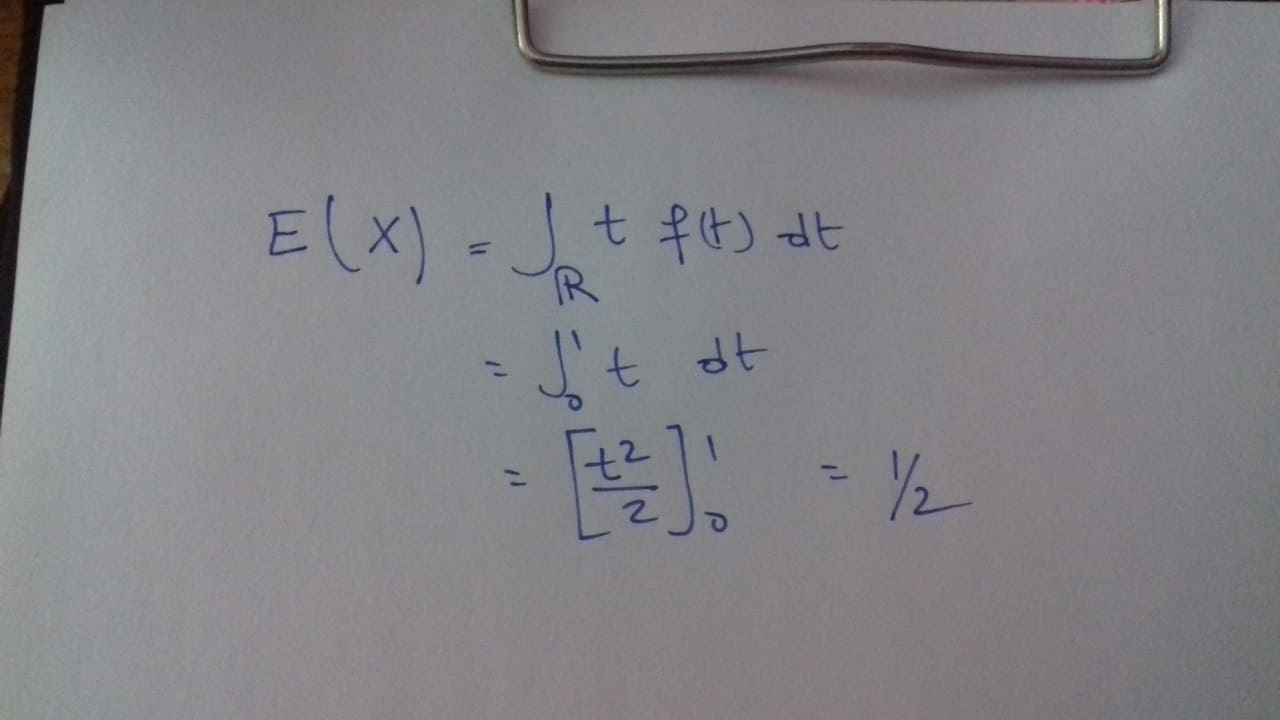 E(X) = ∫_ℝ t f(t) dt
= ∫₀¹ t dt
= [t²/2]₀¹ = 1/2